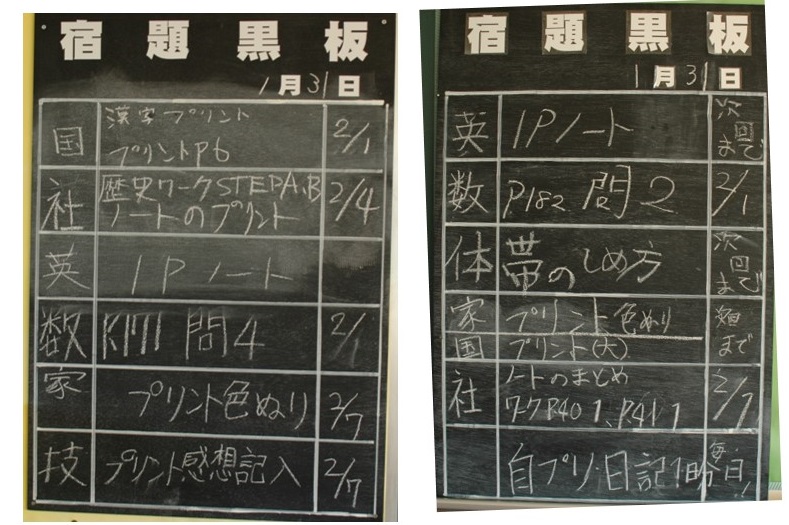 宿題黒板
1月31日
国 漢字プリント 2/1
プリントP6
社 歴史ワークSTEPA.B 2/4
ノートのプリント
英 1Pノート
数 問4 2/1
家 プリント色ぬり 2/7
技 プリント感想記入 2/7
宿題黒板
1月31日
英 1Pノート 次回まで
数 P182 問2 2/1
体 帯のしめ方 次回まで
家 プリント色ぬり まで
国 プリント(大)
社 ノートのまとめ 2/7
ワークP40 1、P41 1
自プリ・日記 毎日!!